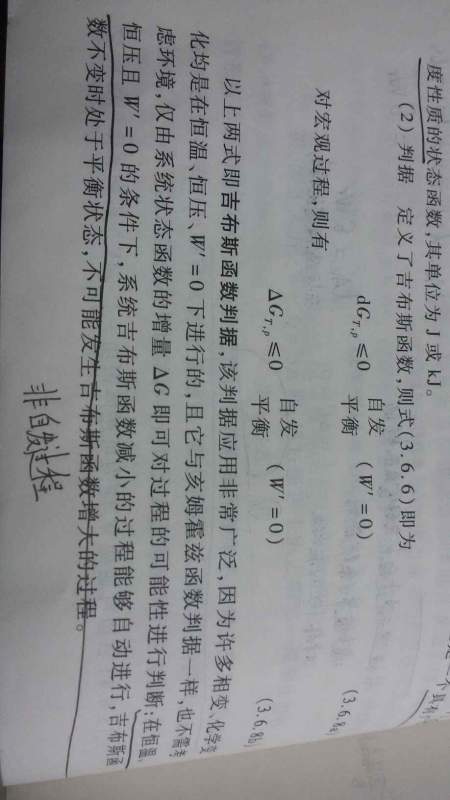 度性质的状态函数,其单位为J或kJ。
(2) 判据 定义了吉布斯函数,则式(3.6.6)即为
dG_{T,p} ≤ 0 自发 平衡 (W′=0) (3.6.8a
对宏观过程,则有
ΔG_{T,p} ≤ 0 自发 平衡 (W′=0) (3.6.8b)
以上两式即吉布斯函数判据,该判据应用非常广泛,因为许多相变、化学变
化均是在恒温、恒压、W′=0下进行的,且它与亥姆霍兹函数判据一样,也不需考
虑环境,仅由系统状态函数的增量ΔG即可对过程的可能性进行判断:在恒温、
恒压且W′=0的条件下,系统吉布斯函数减小的过程能够自动进行,吉布斯函
数不变时处于平衡状态,不可能发生吉布斯函数增大的过程。
非自发过程